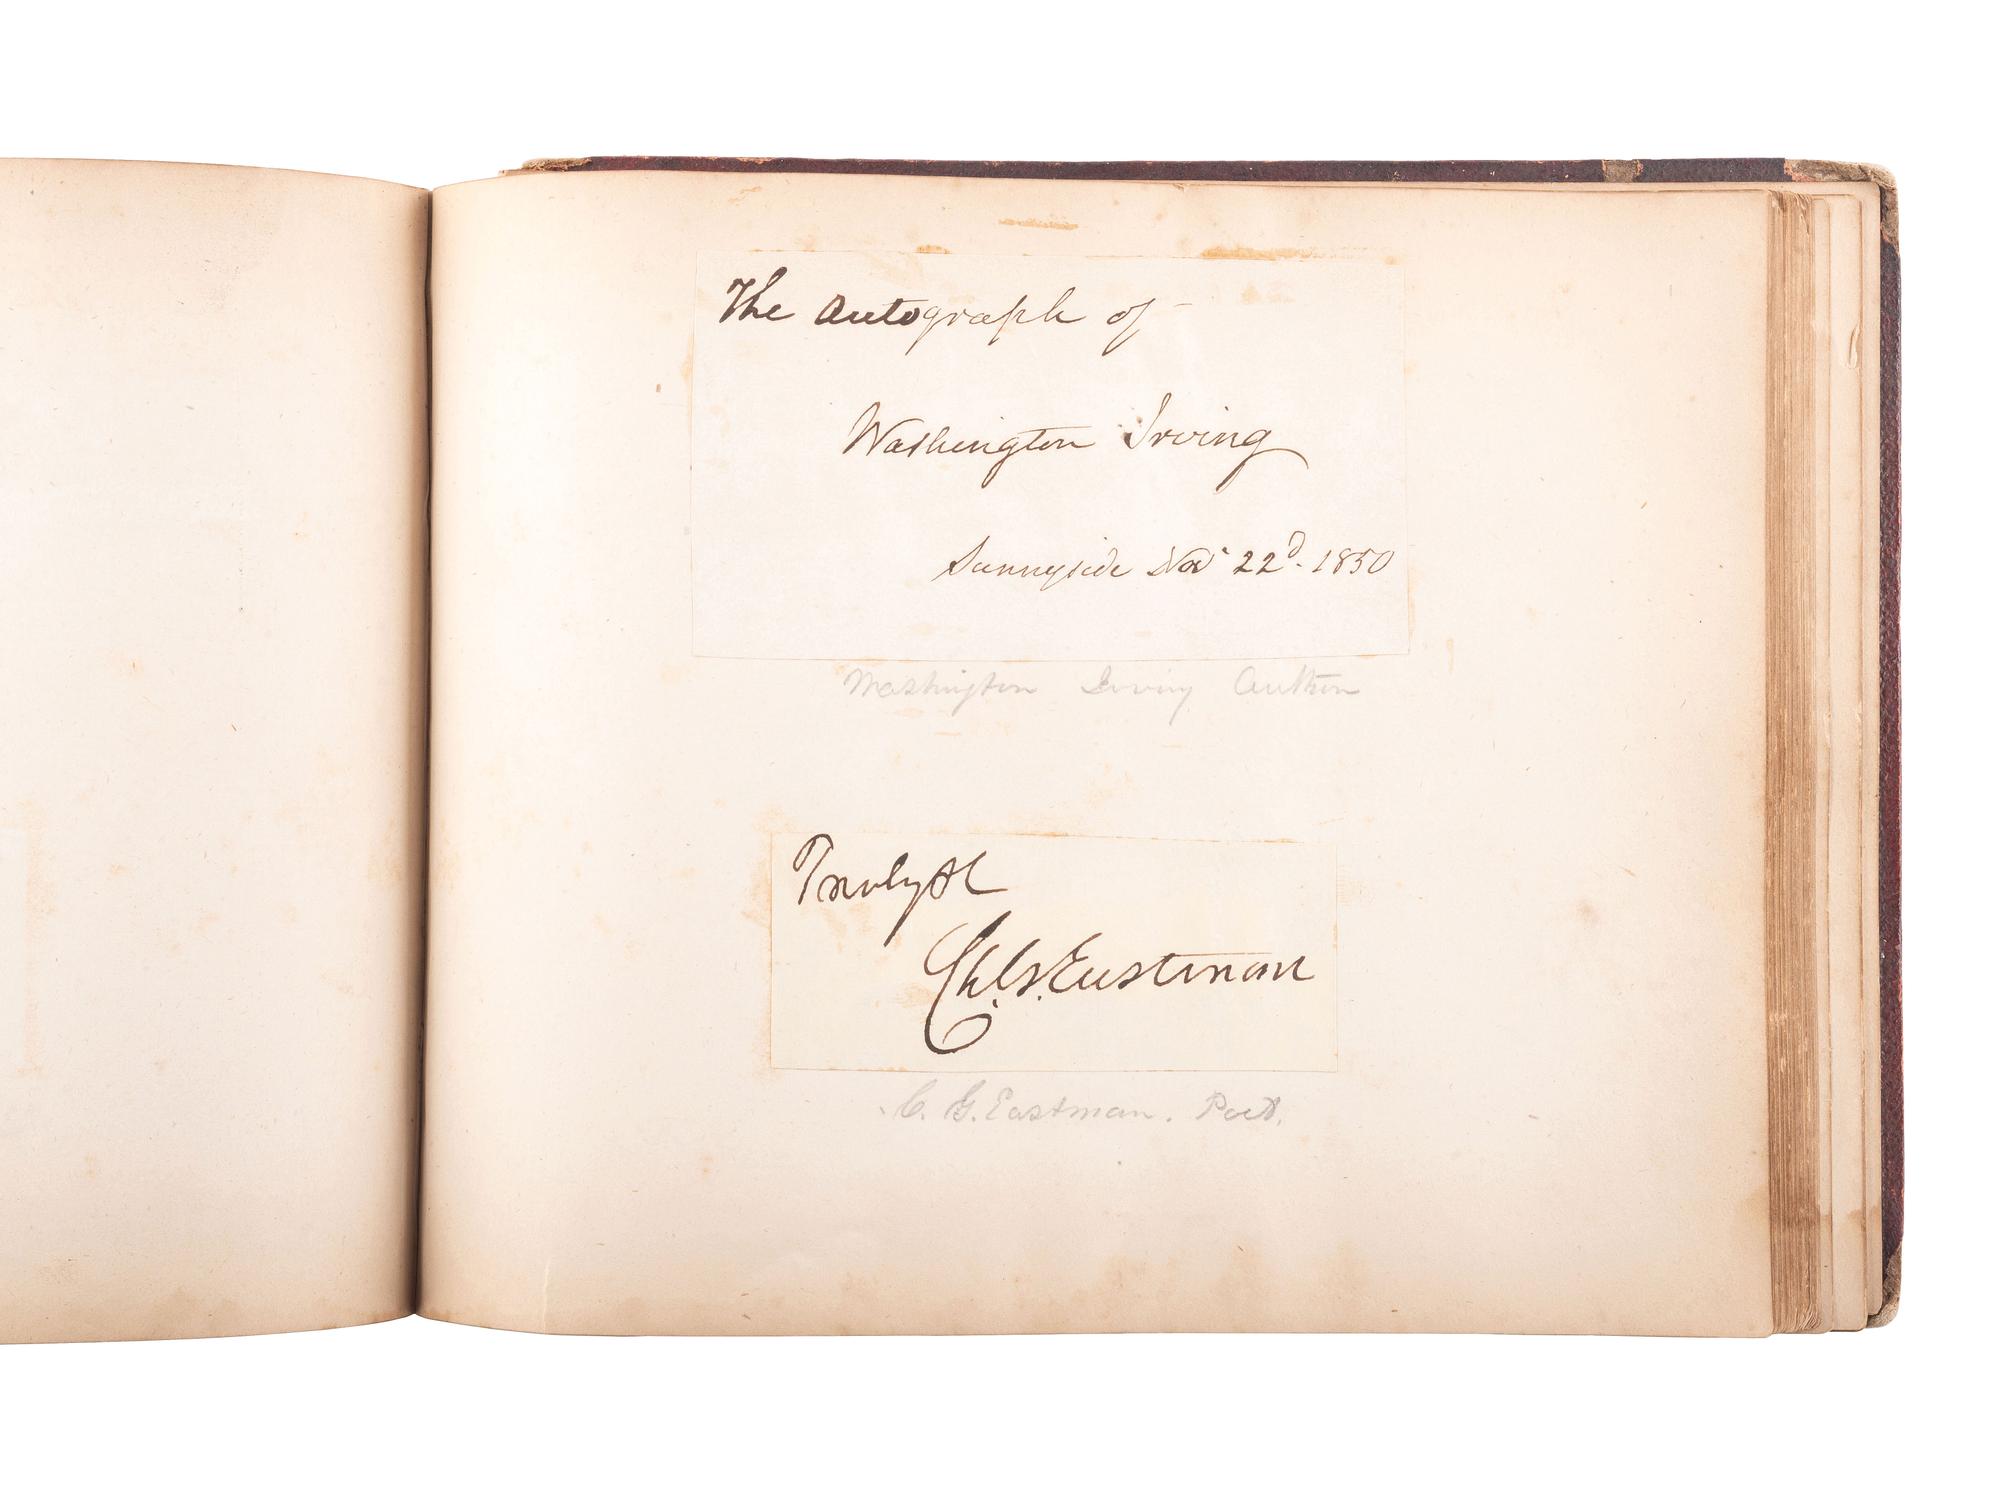 The Autograph of
Washington Irving
Sunnyside Nov 22d. 1850
Washington Irving Author
Truly &c
Ch. G. Eastman
C. G. Eastman. Poet.